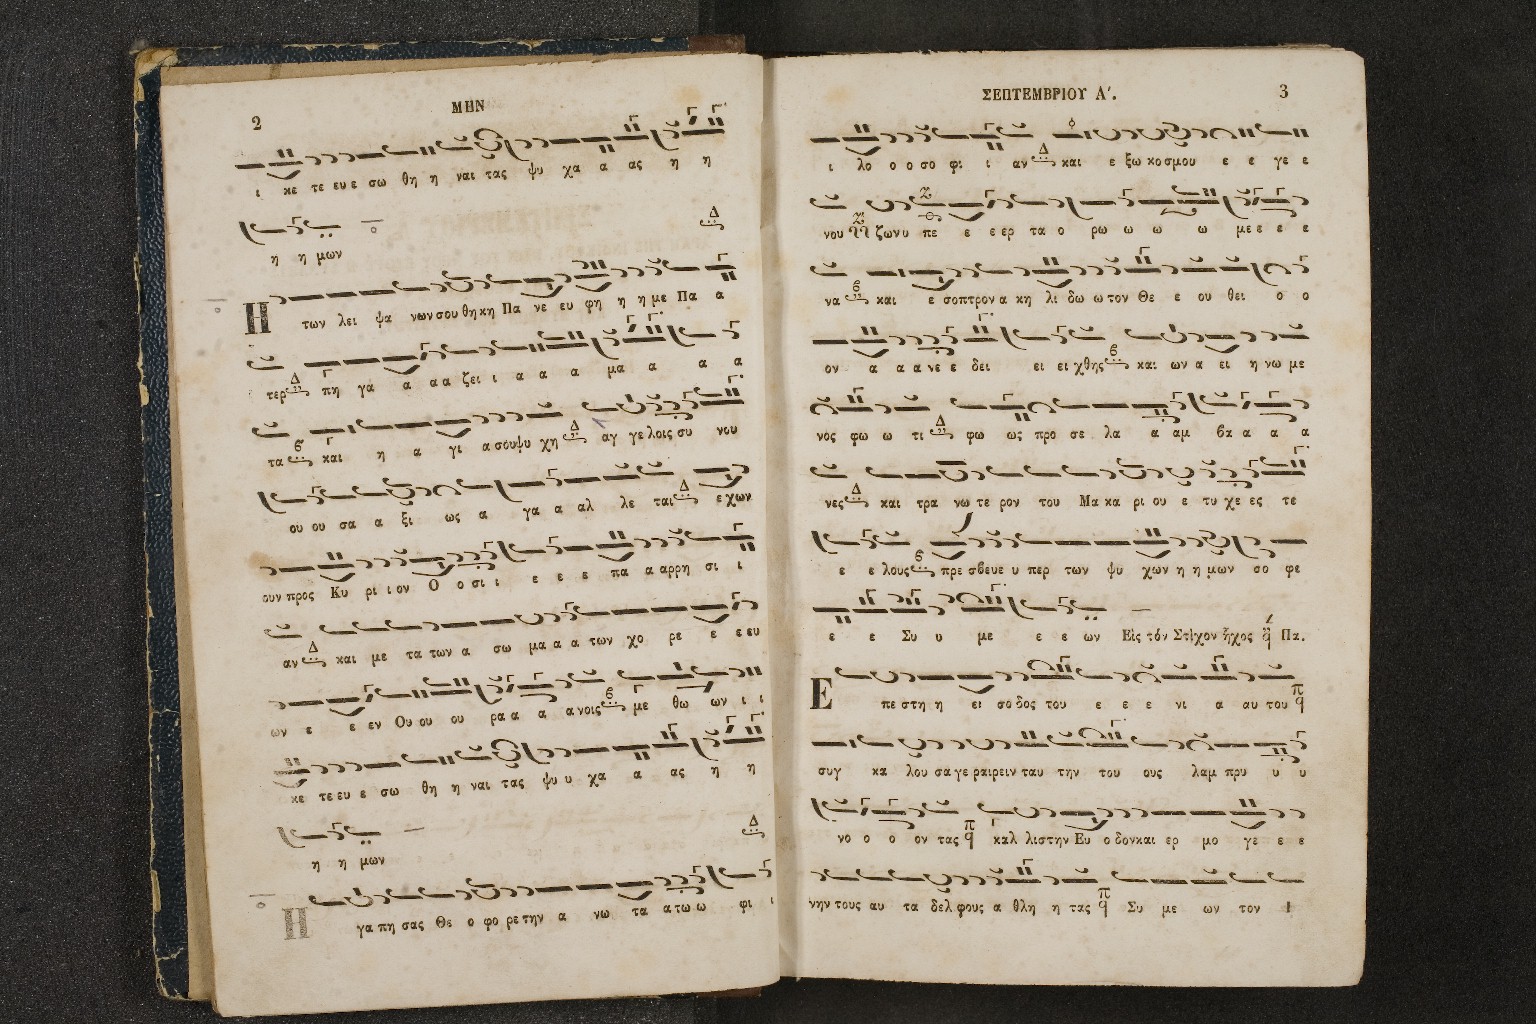 2
ΜΗΝ
ι κε τε ευ ε σω θη η ναι τας ψυ χα α ας η η
η η μων
Η των λει ψα νων σου θη κη Πα νε ευ φη η η με Πα α
τερ Δ πη γα α α α ζει ι α α α μα α α α
τα β και η α γι α σου ψυ χη Δ αγ γε λοις συ νου
ου ου σα α ξι ως α γα α αλ λε ται Δ ε χων
ουν προς Κυ ρι ι ον Ο ο σι ι ε ε ε πα α αρρη σι ι
αν Δ και με τα των α σω μα α α των χο ρε ε ε ευ
ων ε ε εν Ου ου ου ρα α α α νοις β με θω ων ι ι
κε τε ευ ε σω θη η ναι τας ψυ υ χα α ας η η
η η μων
Η γα πη σας Θε ο φο ρε την α νω τα α τω ω φι ι
ΣΕΠΤΕΜΒΡΙΟΥ Α΄.
3
ι λο ο ο σο φι ι αν Δ και ε ξω κο σμου ε ε γε ε
νου ζων υ πε ε ε ερ τα ο ρω ω ω ω με ε ε ε
να β και ε σοπτρον α κη λι δω ω τον Θε ε ου θει ο ο
ον α α α νε ε δει ει ει χθης β και ων α ει η νω με
νος φω ω τι Δ φω ως προ σε λα α αμ βα α α α
νες Δ και τρα νω τε ρον του Μα κα ρι ου ε τυ χε ες τε
ε ε λους β πρε σβευε υ περ των ψυ χων η η μων σο φε
ε ε Συ υ με ε ε ων Εἰς τόν Στίχον ἦχος Πα.
Ε πε στη η ει σο δος του ε ε ε νι α αυ του
συγ κα λου σα γε ραιρειν ταυ την του ους λαμ πρυ υ υ
νο ο ο ον τας καλ λιστην Ευ ο δον και ερ μο γε ε ε
νην τους αυ τα δελ φους α θλη η τας Συ με ων τον